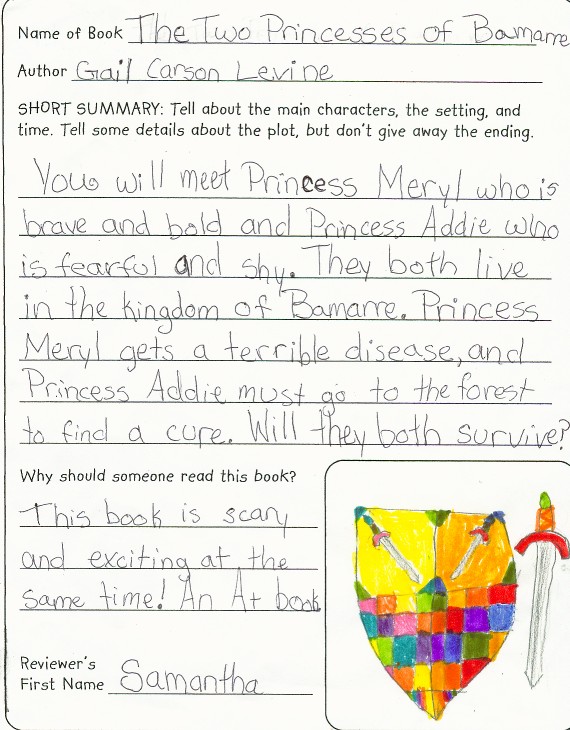 Name of Book The Two Princesses of Bamarre
Author Gail Carson Levine
SHORT SUMMARY: Tell about the main characters, the setting, and
time. Tell some details about the plot, but don't give away the ending.
You will meet Princess Meryl who is
brave and bold and Princess Addie who
is fearful and shy. They both live
in the kingdom of Bamarre. Princess
Meryl gets a terrible disease, and
Princess Addie must go to the forest
to find a cure. Will they both survive?
Why should someone read this book?
This book is scary
and exciting at the
same time! An A+ book
Reviewer's
First Name Samantha